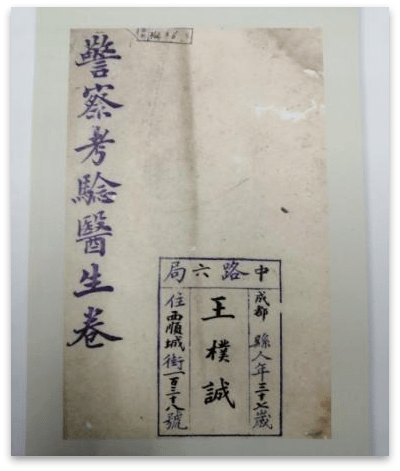 警察考騐醫生卷
中路六局
成都縣人年三十七歲
王樸誠
住西順城街一百三十八號